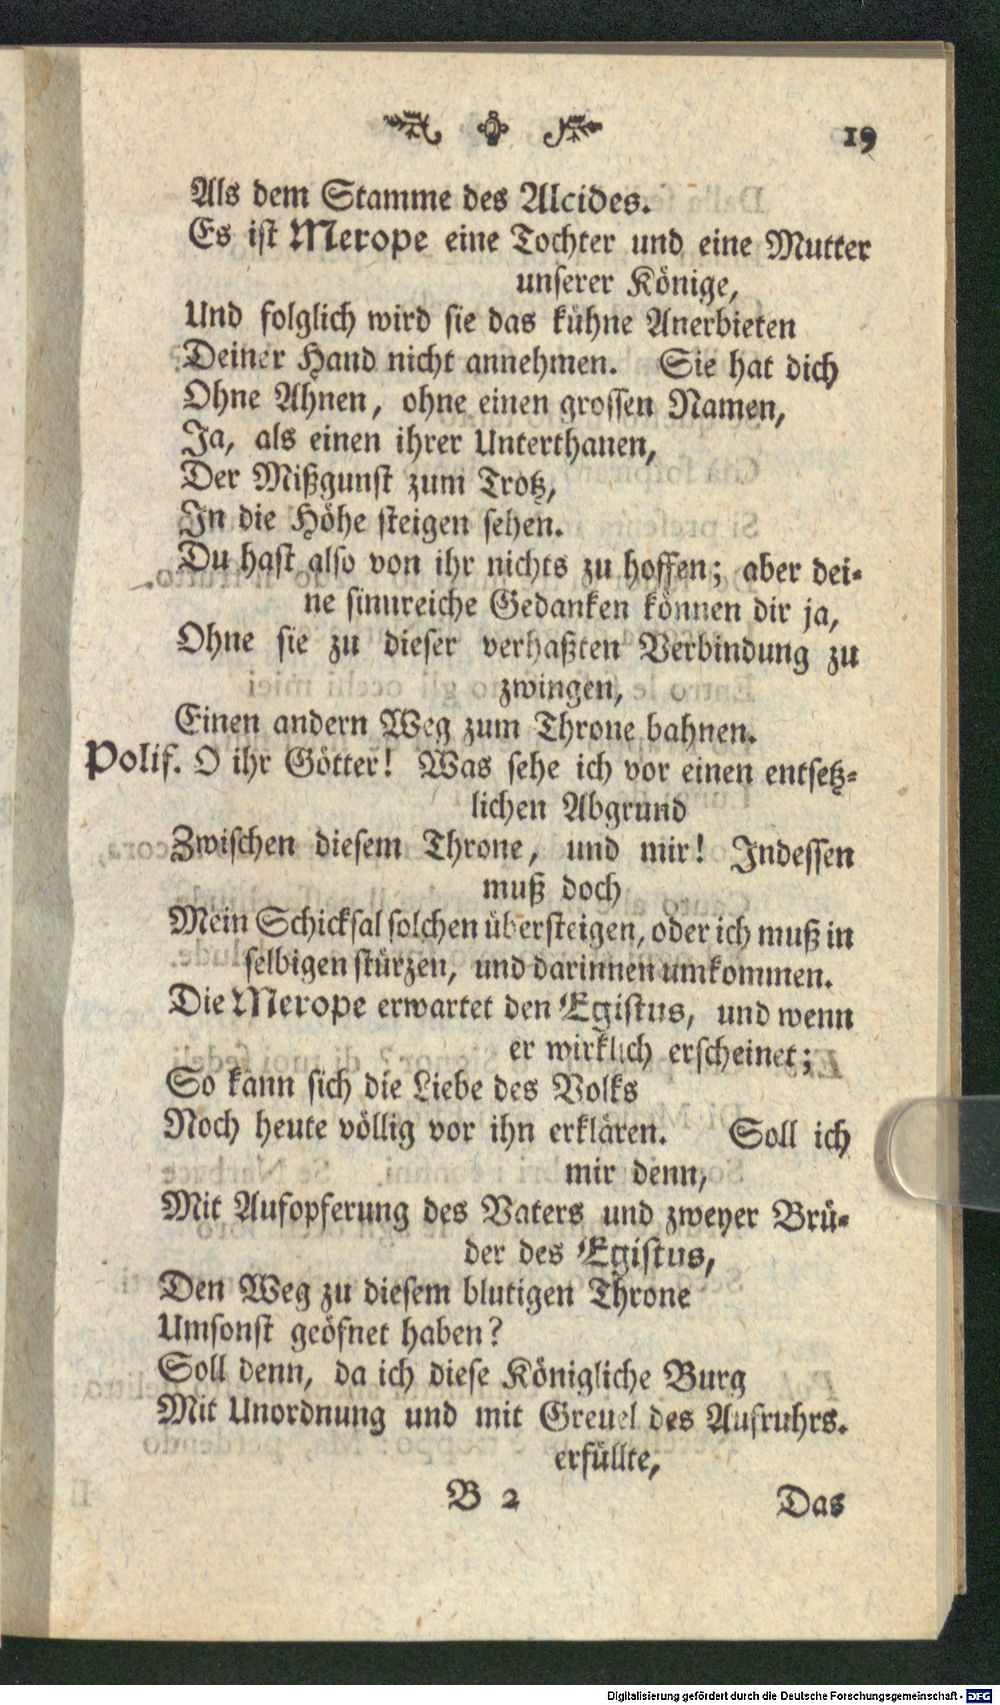 19
Als dem Stamme des Alcides.
Es ist Merope eine Tochter und eine Mutter
unserer Könige,
Und folglich wird sie das kühne Anerbieten
Deiner Hand nicht annehmen. Sie hat dich
Ohne Ahnen, ohne einen grossen Namen,
Ja, als einen ihrer Unterthanen,
Der Mißgunst zum Trotz,
In die Höhe steigen sehen.
Du hast also von ihr nichts zu hoffen; aber dei-
ne sinnreiche Gedanken können dir ja,
Ohne sie zu dieser verhaßten Verbindung zu
zwingen,
Einen andern Weg zum Throne bahnen.
Polif. O ihr Götter! Was sehe ich vor einen entsetz-
lichen Abgrund
Zwischen diesem Throne, und mir! Indessen
muß doch
Mein Schicksal solchen übersteigen, oder ich muß in
selbigen stürzen, und darinnen umkommen.
Die Merope erwartet den Egistus, und wenn
er wirklich erscheinet;
So kann sich die Liebe des Volks
Noch heute völlig vor ihn erklären. Soll ich
mir denn,
Mit Aufopferung des Vaters und zweyer Brü-
der des Egistus,
Den Weg zu diesem blutigen Throne
Umsonst geöfnet haben?
Soll denn, da ich diese Königliche Burg
Mit Unordnung und mit Greuel des Aufruhrs.
erfüllte,
B 2 Das
Digitalisierung gefördert durch die Deutsche Forschungsgemeinschaft - DFG